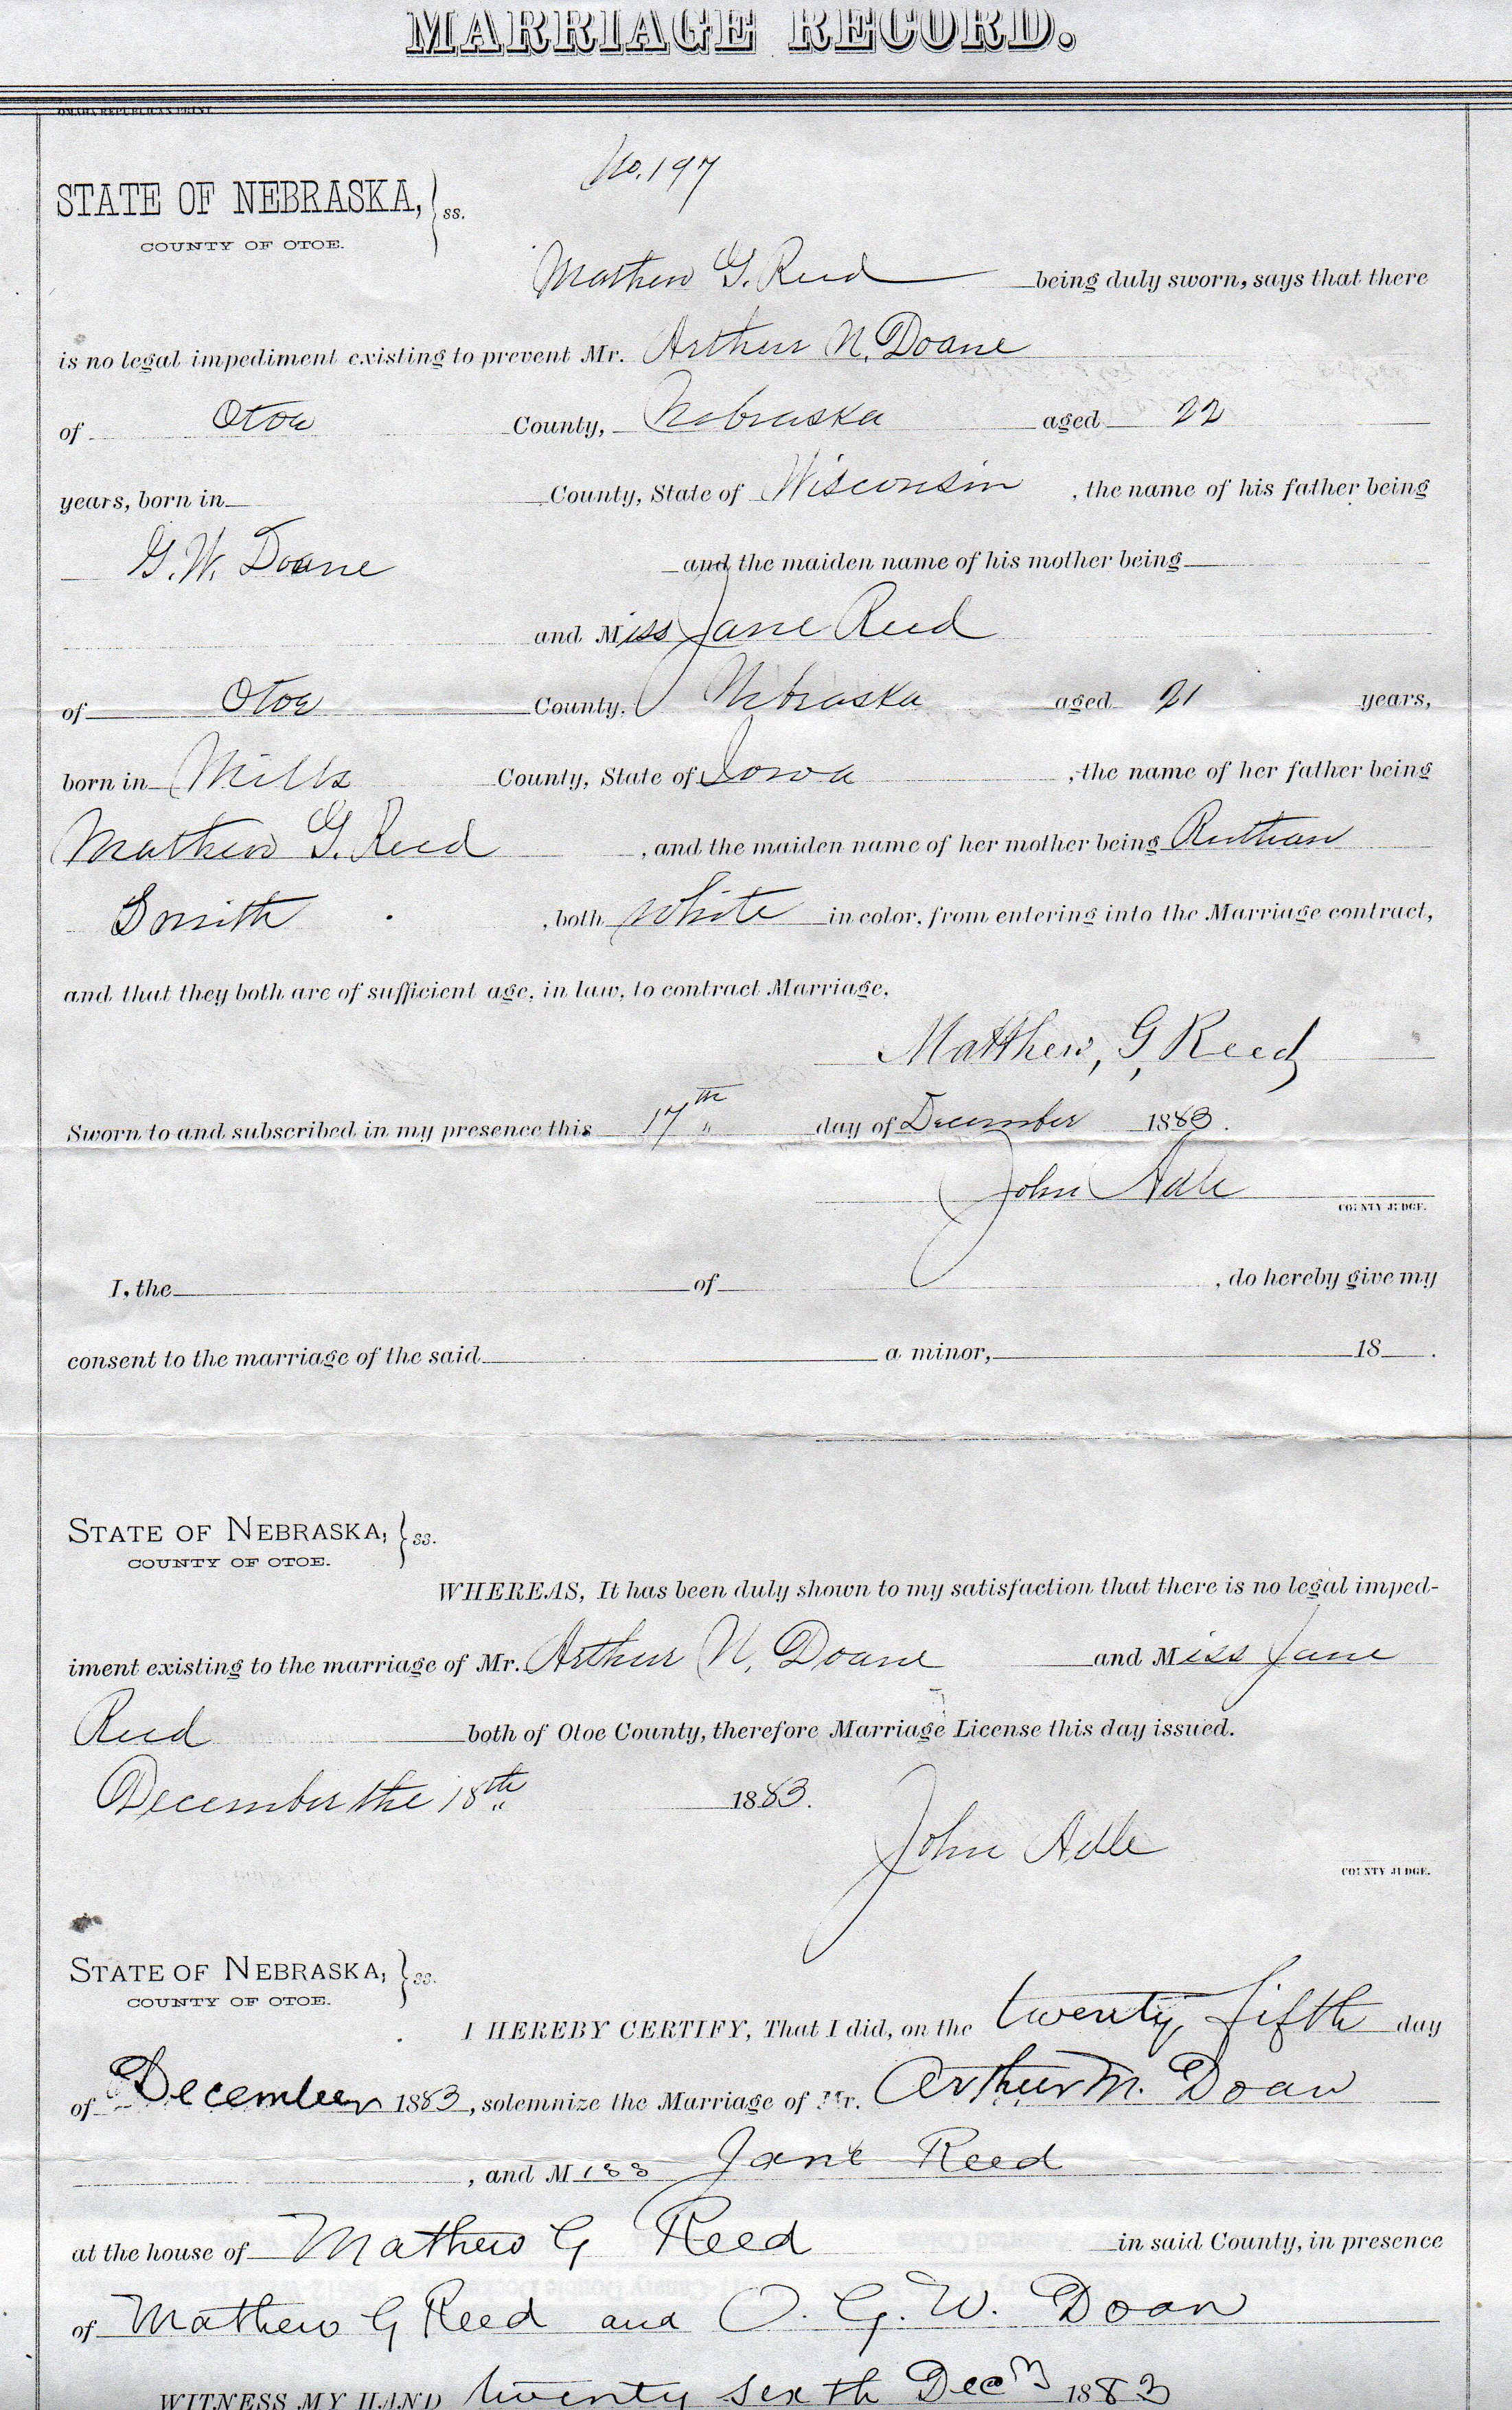 MARRIAGE RECORD.
OMAHA REPUBLICAN PRINT
No. 197
STATE OF NEBRASKA, } ss.
COUNTY OF OTOE.
Mathew G. Reed being duly sworn, says that there
is no legal impediment existing to prevent Mr. Arthur N. Doane
of Otoe County, Nebraska aged 22
years, born in County, State of Wisconsin, the name of his father being
G. W. Doane and the maiden name of his mother being
and Miss Jane Reed
of Otoe County, Nebraska aged 21 years,
born in Mills County, State of Iowa, the name of her father being
Mathew G. Reed, and the maiden name of her mother being Ruthan
Smith, both white in color, from entering into the Marriage contract,
and that they both are of sufficient age, in law, to contract Marriage.
Matthew, G, Reed
Sworn to and subscribed in my presence this 17th day of December 1883.
John Adle
COUNTY JUDGE.
I, the of , do hereby give my
consent to the marriage of the said a minor, 18 .
STATE OF NEBRASKA, } ss.
COUNTY OF OTOE.
WHEREAS, It has been duly shown to my satisfaction that there is no legal imped-
iment existing to the marriage of Mr. Arthur N. Doane and Miss Jane
Reed both of Otoe County, therefore Marriage License this day issued.
December the 18th 1883.
John Adle
COUNTY JUDGE.
STATE OF NEBRASKA, } ss.
COUNTY OF OTOE.
I HEREBY CERTIFY, That I did, on the twenty fifth day
of December 1883, solemnize the Marriage of Mr. Arthur M. Doan
, and Miss Jane Reed
at the house of Mathew G Reed in said County, in presence
of Mathew G Reed and O. G. W. Doan
WITNESS MY HAND twenty sexth Dec 1883